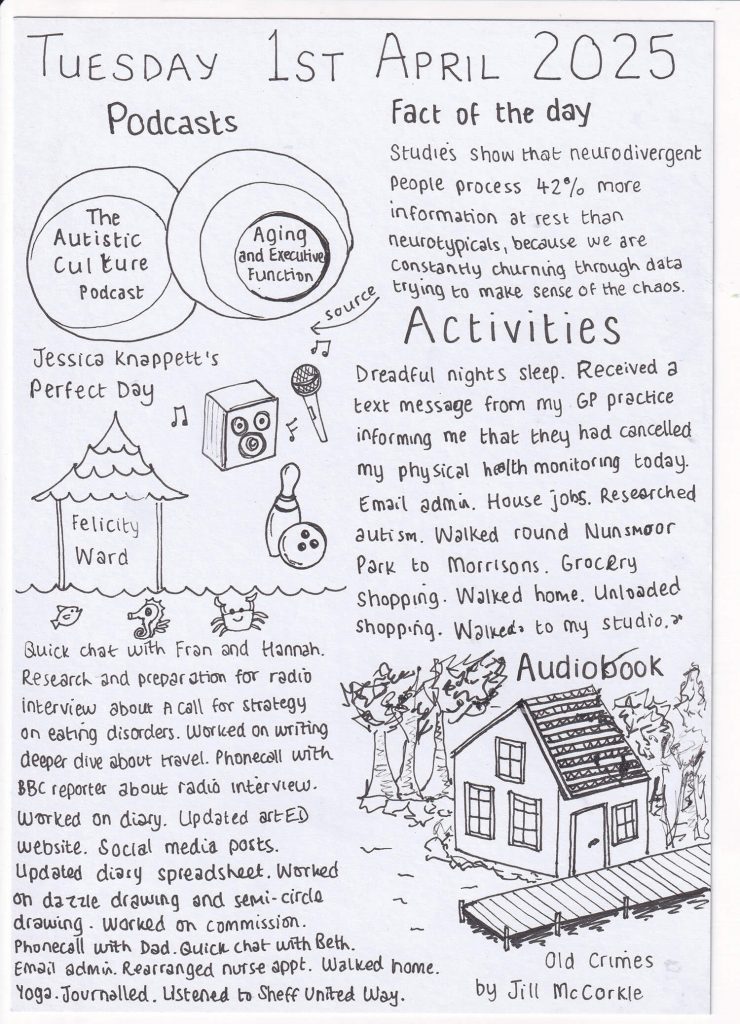 TUESDAY 1ST APRIL 2025
Podcasts
The
Autistic
Culture
Podcast
Aging
and Executive
Function
Fact of the day
Studies show that neurodivergent
people process 42% more
information at rest than
neurotypicals, because we are
constantly churning through data
trying to make sense of the chaos.
source
Jessica Knappett's
Perfect Day
Felicity
Ward
Activities
Dreadful nights sleep. Received a
text message from my GP practice
informing me that they had cancelled
my physical health monitoring today.
Email admin. House jobs. Researched
autism. Walked round Nunsmoor
Park to Morrisons. Grocery
shopping. Walked home. Unloaded
shopping. Walked to my studio.
Quick chat with Fran and Hannah.
Research and preparation for radio
interview about A call for strategy
on eating disorders. Worked on writing
deeper dive about travel. Phonecall with
BBC reporter about radio interview.
Worked on diary. Updated artED
website. Social media posts.
Updated diary spreadsheet. Worked
on dazzle drawing and semi-circle
drawing. Worked on commission.
Phonecall with Dad. Quick chat with Beth.
Email admin. Rearranged nurse appt. Walked home.
Yoga. Journalled. Listened to Sheff United Way.
Audiobook
Old Crimes
by Jill McCorkle